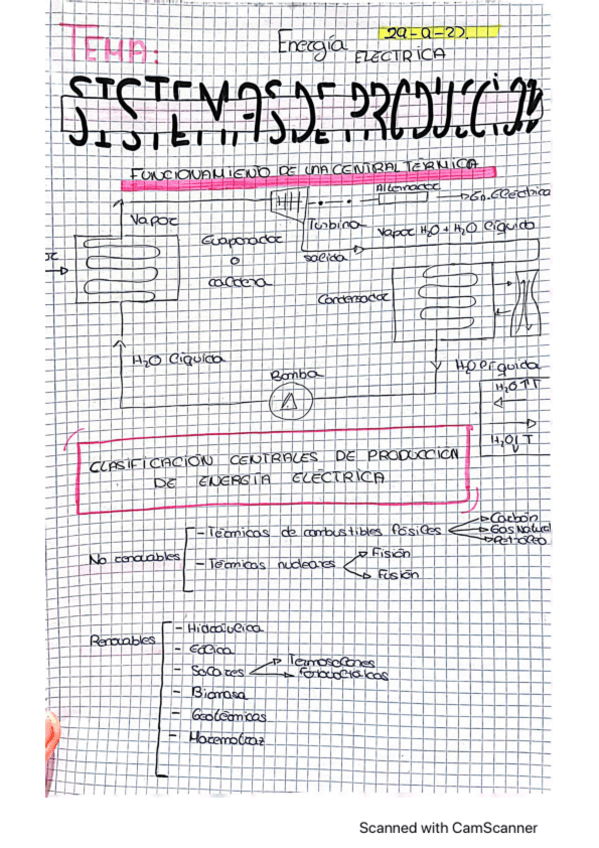 TEMA:
Energía
ELÉCTRICA
SISTEMAS DE PRODUCCIÓN
FUNCIONAMIENTO DE UNA CENTRAL TÉRMICA
Alternador
Vapor
Turbina
Vapor H2O + H2O líquida
Evaporador
o
caldera
salida
Condensador
H2O líquida
Bomba
H2O líquida
H2O ↑T
H2O ↓T
CLASIFICACIÓN CENTRALES DE PRODUCCIÓN
DE ENERGÍA ELÉCTRICA
No renovables
- Térmicas de combustibles fósiles
Carbón
Gas Natural
Petróleo
- Térmicas nucleares
Fisión
Fusión
Renovables
- Hidráulica
- Eólica
- Solares
Termosolares
Fotovoltaicas
- Biomasa
- Geotérmicas
- Maremotraz
Scanned with CamScanner